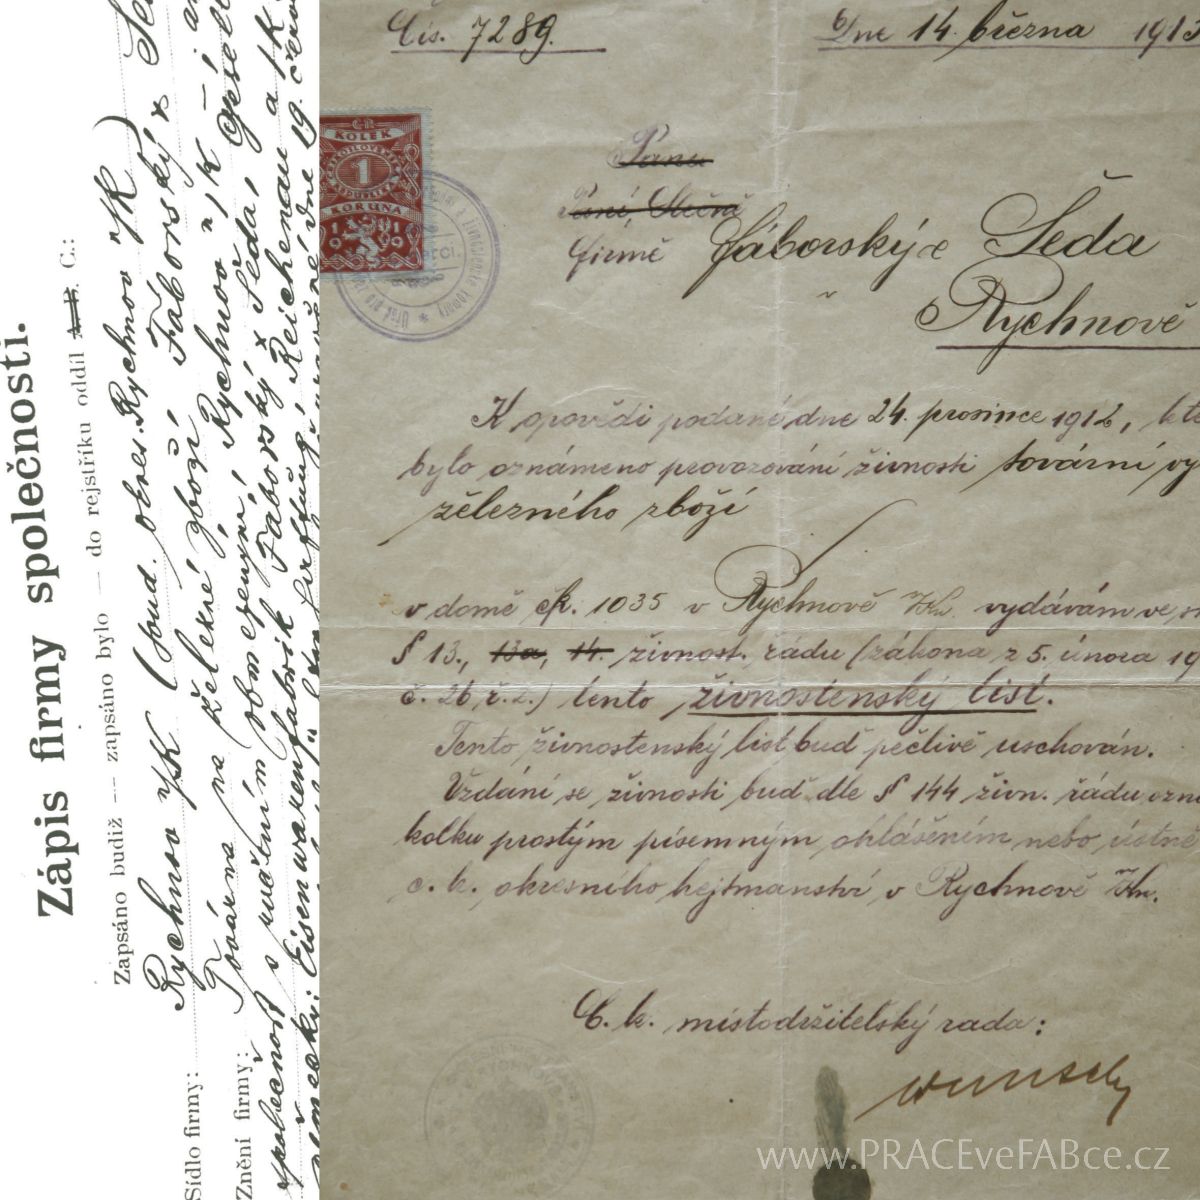 Zápis firmy společnosti.
Zapsáno budiž — zapsáno bylo — do rejstříku oddíl A. B. C.:
Sídlo firmy: Rychnov n/K (soud. okres Rychnov n/K)
Znění firmy: Továrna na železné zboží, Fáborský &
společnost s ručením obmezeným, Rychnov n/K
německy: Eisenwarenfabrik Fáborský & Šeda, Gesell
Reichenau a/K
Čís. 7289.
Dne 14. března 1913
KOLEK
ČESKOSLOVENSKÁ
1
REPUBLIKA
KORUNA
1919
Pánu
Paní, Slečně
firmě Fáborský & Šeda
v Rychnově
K opovědi podané dne 24. prosince 1912, kte
bylo oznámeno provozování živnosti tovární vý
železného zboží
v domě čp. 1035 v Rychnově n/Kn. vydávám ve s
§ 13., 13a, 14. živnost. řádu (zákona z 5. února 19
č. 26, ř. z.) tento živnostenský list.
Tento živnostenský list buď pečlivě uschován.
Vzdání se živnosti buď dle § 144 živn. řádu ozná
kolku prostým písemným ohlášením nebo ústně
c. k. okresního hejtmanství v Rychnově n/Kn.
C. k. místodržitelský rada:
www.PRACEveFABce.cz